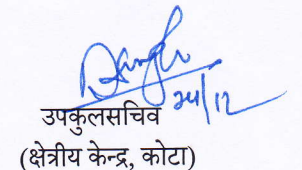 24/12
उपकुलसचिव
(क्षेत्रीय केन्द्र, कोटा)